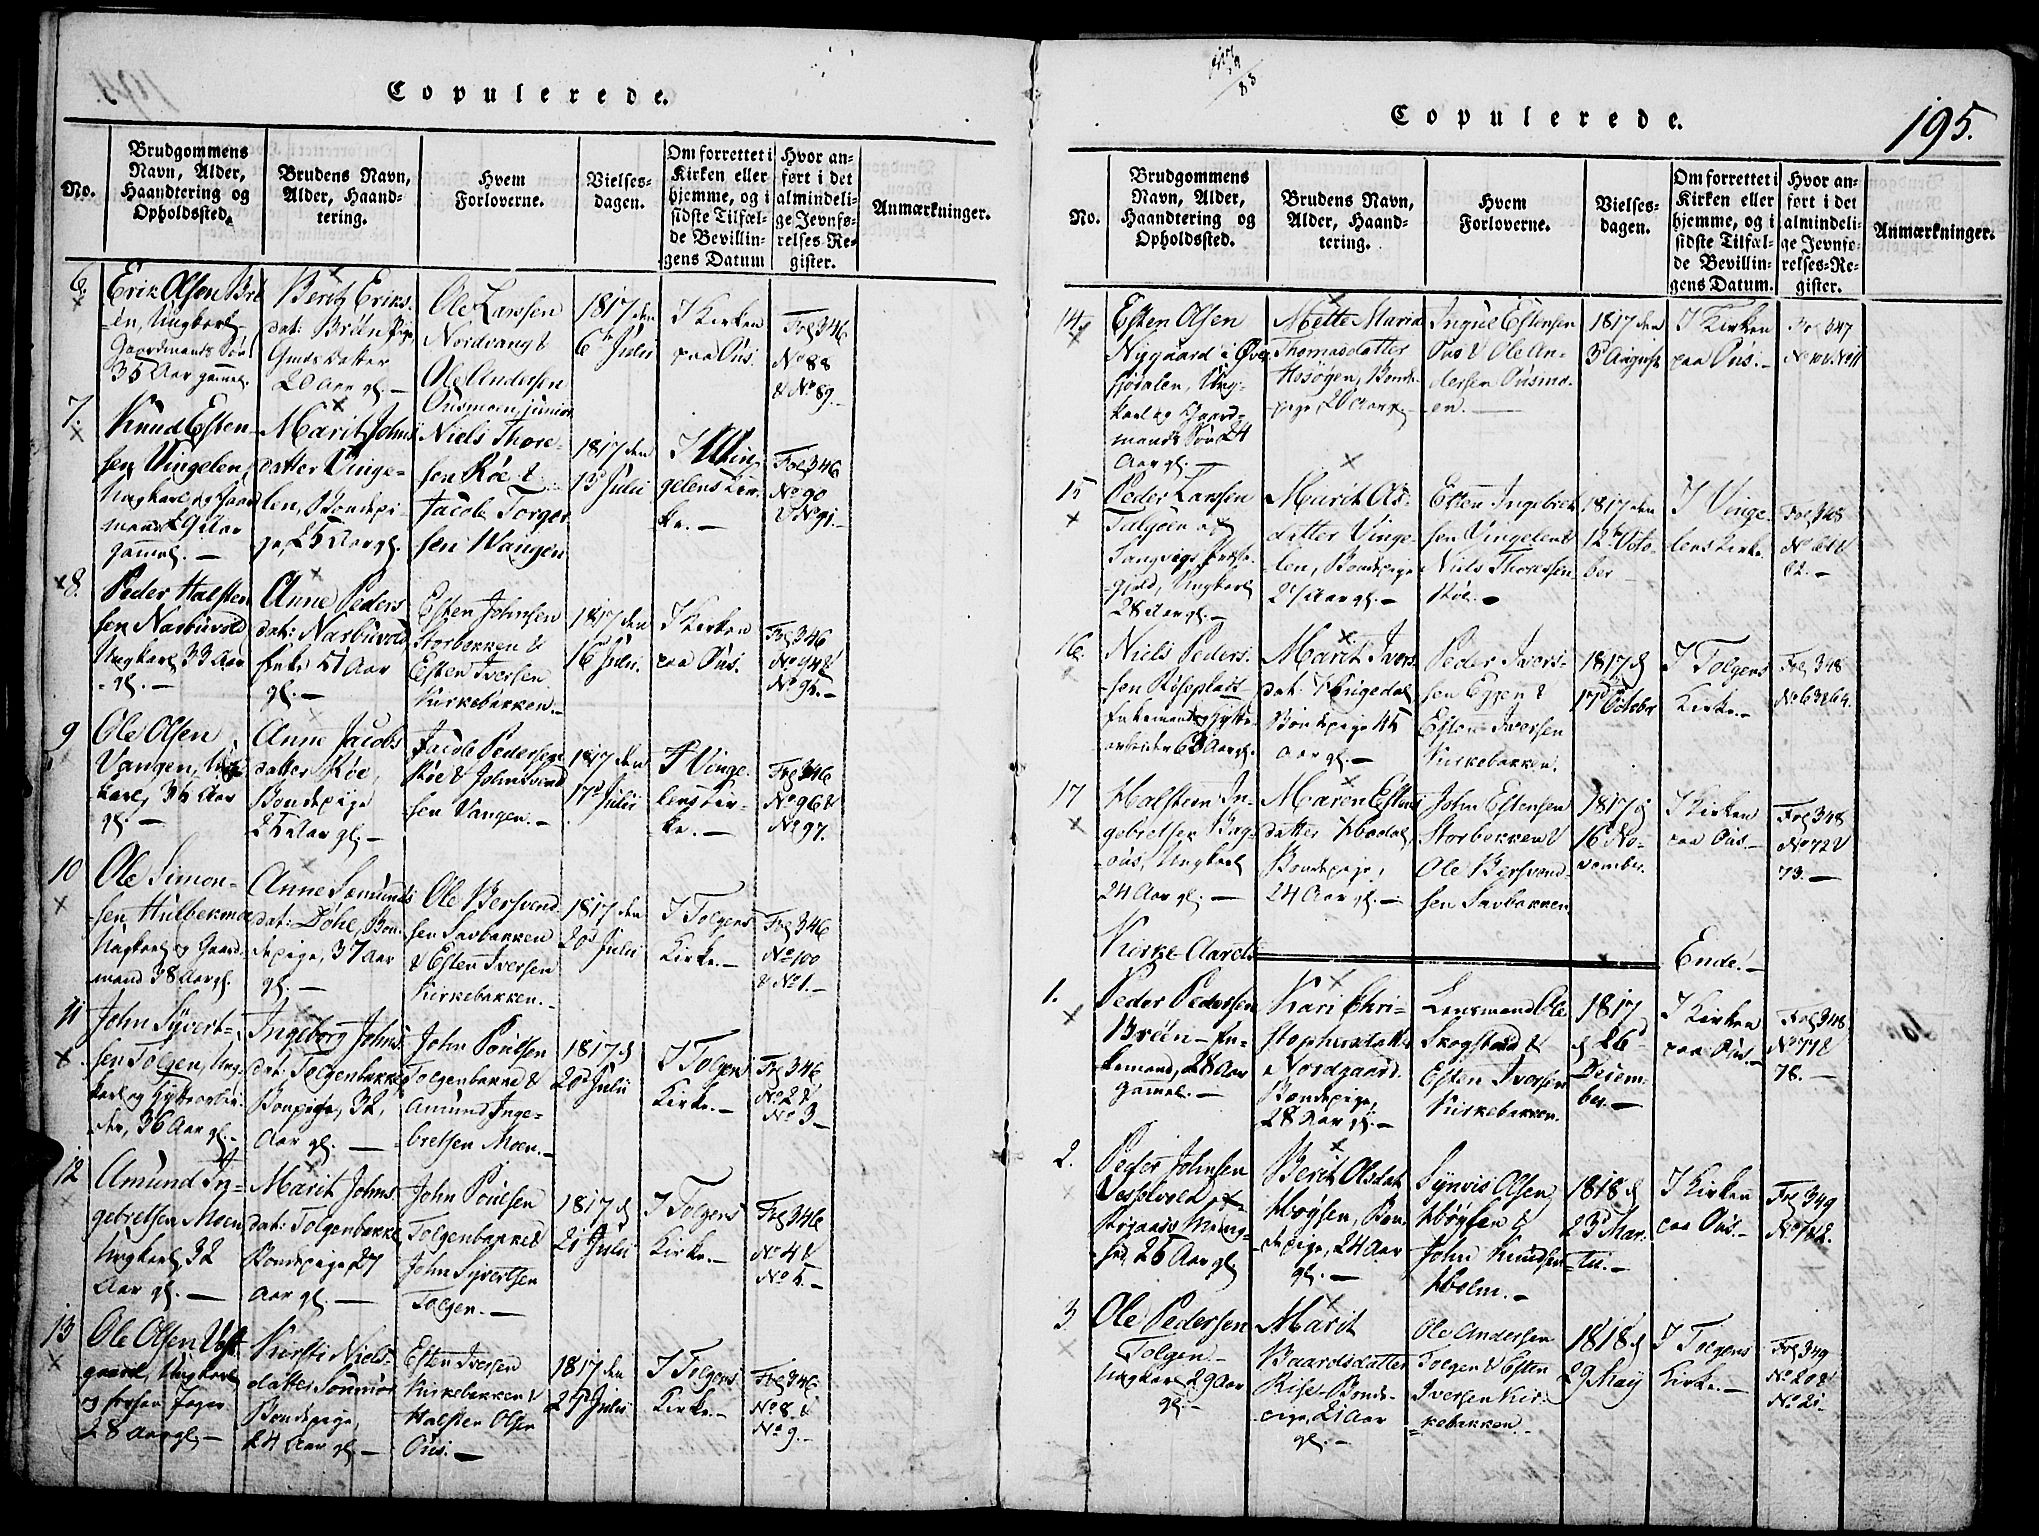 Copulerede.
No.
Brudgommens
Navn, Alder,
Haandtering og
Opholdssted.
Brudens Navn,
Alder, Haand-
tering.
Hvem
Forloverne.
Vielses-
dagen.
Om forrettet i
Kirken eller
hjemme, og i
sidste Tilfæl-
de Bevillin-
gens Datum
Hvor an-
ført i det
almindeli-
ge Jevnfø-
relses-Re-
gister.
Anmærkninger.
6.
Erik Olsen
35 Aar gamel.
Berit Eriks
dat: Bröen
20 Aar gl. —
Ole Larssen
Nordvang &
Ole Andersen
Ousmoen junior
1817 den
6te Julii
I Kirken
paa Ous.
Fol 346
No 88
& No 89. —
7.
Knud Esten-
sen Vingelen,
gammel. —
Marit Johns
datter Vinge-
len, Bondepi
ge, 25 Aar gl.
Niels Thore-
sen Röe &
Jacob Torger
sen Wangen
1817 den
13 Julii
I Vin
gelens Kir-
ke. —
Fol 346
No 90
& No 91. —
8.
Peder Halsten
sen Narbuvold
Ungkarl 33 Aar
gl. —
Anne Peders
dat: Narbuvold
Enke 51 Aar
gl. —
Esten Johnsen
Storbekken &
Esten Iversen
Kirkebakken. —
1817 den
16 Julii
I Kirken
paa Ous.
Fol 346
No 94 &
No 95. —
9
Ole Olsen
Vangen, Ung
karl, 35 Aar
gl. —
Anne Jacobs
datter Röe,
Bondepige
25 Aar gl. —
Jacob Pedersen
Röe & John
sen Vangen. —
1817 den
17d Julii
I Vinge
lens Kir-
ke. —
Fol 346
No 96 &
No 97.
10
Ole Simon-
sen Hulbekmoe
Ungkarl og Gaard
mand 38 Aar gl.
Anne Samunds
dat: Dohe, Bon
depige, 37 Aar
gl. —
Ole Bersvend
sen Savbakken
& Esten Iversen
Kirkebakken. —
1817 den
20d Julii
I Tolgens
Kirke. —
Fol 346
No 100
& No 1. —
11
John Sivert-
sen Tolgen, Ung
karl og Hytte
der, 36 Aar gl. —
Ingeborg Johns
dat: Tolgenbakke
Bonpige, 32,
Aar gl. —
John Poulsen
Tolgenbakke &
Amund Inge-
bretsen Moen. —
1817 d
20d Julii
I Tolgens
Kirke. —
Fol 346
No 2 &
No 3 —
12
Amund In-
gebretsen Moen
Ungkarl 32
Aar gl. —
Marit Johns
dat: Tolgenbakke
Bondepige, 27
Aar gl. —
John Poulsen
Tolgenbakke &
John Syvertsen
Tolgen. —
1817 d
21 Julii
I Tolgens
Kirke. —
Fol 346
No 4 &
No 5. —
13
Ole Olsen
gaard, Ungkarl
28 Aar gl —
Kirsti Niels-
datter
Bondepige,
24 Aar gl —
Esten Iversen
Kirkebakken &
Halsten Olsen
Ous. —
1817 den
Julii
I Tolgens
Kirke. —
Fol 346
No 8 &
No 9. —
Copulerede.
195.
No.
Brudgommens
Navn, Alder,
Haandtering og
Opholdssted.
Brudens Navn,
Alder, Haand-
tering.
Hvem
Forloverne.
Vielses-
dagen.
Om forrettet i
Kirken eller
hjemme, og i
sidste Tilfæl-
de Bevillin-
gens Datum.
Hvor an-
ført i det
almindeli-
ge Jevnfø-
relses-Re-
gister.
Anmærkninger.
14
Esten Olsen
Nygaard i Øver
24
Aar gl. —
Mette Maria
Thomasdatter
Hosögen, Bonde
pige, 20 Aar gl
Ingul Estensen
Ous & Ole An-
dersen Ousmo-
en. —
1817 den
3 August
I Kirken
paa Ous. —
Fol 347
15
Peder Larssen
gield, Ungkarl
28 Aar gl. —
Marit Ols-
datter Vinge-
len, Bondepige
Esten Ingebret
sen Vingelen &
Niels Thoressen
Röe. —
1817 den
12te Octo-
ber
I Vinge-
lens Kirke
Fol 348
No 61 &
62. —
16.
Niels Peders-
sen Röseplads
Marit Ivers
dat: Engedal
Bondepige 45
aar gl. —
Peder Ivers-
sen Eggen &
Esten Iversen
Kirkebakken.
1817 d
17d October
I Tolgens
Kirke. —
Fol 348
No 63 & 64.
17
Halsteen In-
gebretsen
ous, Ungkarl
24 Aar gl. —
Maren Estens
datter Hodal,
Bondepige,
24 Aar gl. —
John Estensen
Storbekken &
Ole Bersvend
sen Savbakken
1817 d
16 No-
vember.
I Kirken
paa Ous. —
Fol 348
No 72 &
73. —
Kirke-Aarets
Ende. —
1.
Peder Pedersen
Bröen — En-
kemand, 28 Aar
gammel. —
Kari Chri-
stophersdatter
Nordgaard.
Bondepige,
28 Aar gl. —
Lensmand Ole
Skogstad &
Esten Iversen
Kirkebakken.
1817
d 26d
Decem-
ber. —
I Kirken
paa Ous —
Fol 348
78. —
2.
Peder Johnsen
25 Aar gl.
Berit Olsdat
Höysen, Bon
depige, 24 Aar
gl. —
Synvis Olsen
Höysen &
John Knudsen
Holm. —
1818 d
23d Mar-
tii. —
I Kirken
paa Ous. —
Fol 349
3
Ole Pedersen
Tolgen. —
Ungkarl 29 Aar
gl. —
Marit
Baardsdatter
Riise Bonde-
pige, 21 Aar
gl. —
Ole Andersen
Tolgen & Esten
Iversen Kir-
kebakken. —
1818 d
29 May
I Tolgens
Kirke. —
Fol 349
No 20 &
No 21